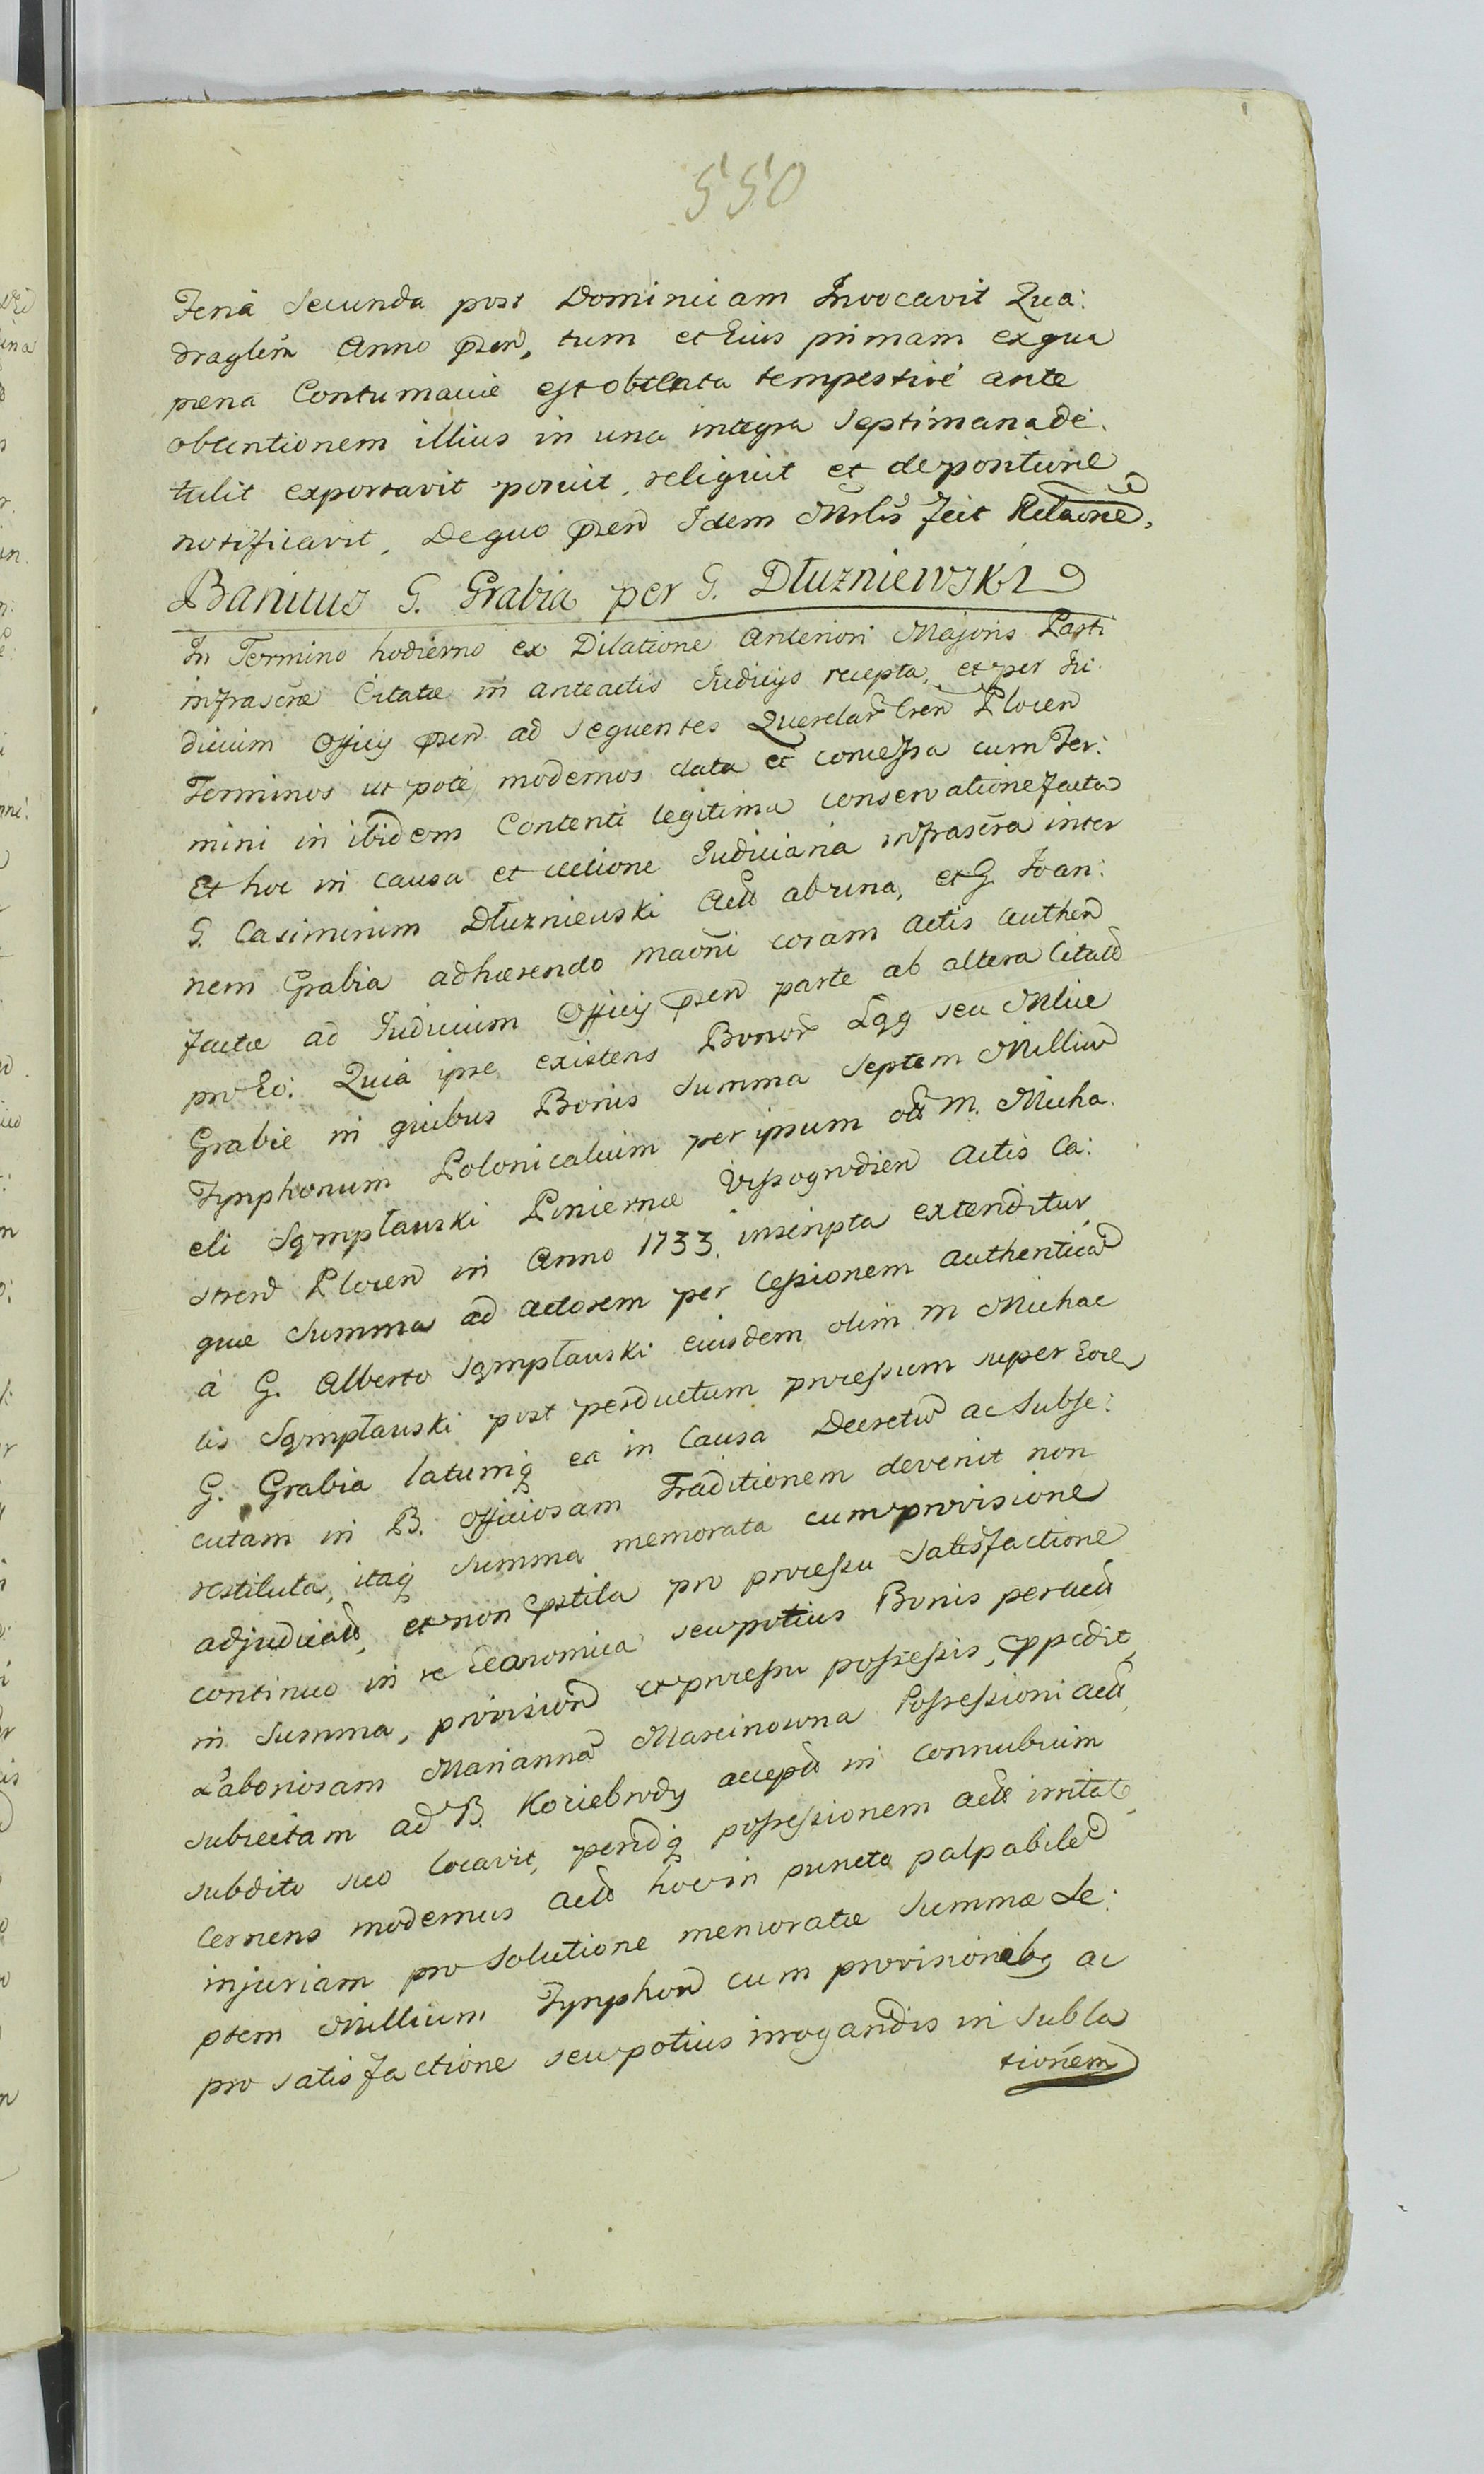 550
Feria Secunda post Dominicam Invocavit Qua:
draglem Anno psen, tum et Eius primam exqua
pena Contumaciæ est obtenta tempestive ante
obtentionem illius in una integra Septimana de:
tulit exportavit posuit, reliquit et depositione
notificavit, Dequo psen Idem Mrlis fecit Relaone,
Banitus G. Grabia per G. Dłuzniewski
In Termino hodierno ex Dilatione Anteriori Majoris Parti
infrascræ Citatæ in anteactis Judicijs recepta, et per Iu:
dicium Officij psen ad sequentes Querelar Cren Plocen
Terminos ut pote modernos data et concessa cum Ter:
mini in ibidem Contenti legitima conservatione facta
Et hoc in causa et actione Judiciaria infrascra inter
G. Casimirum Dłuzniewski Act ab una, et G. Joan:
nem Grabia adhærendo maoni coram Actis Authen
factæ ad Judicium Officij psen parte ab altera Citat
pro Eo: Quia ipse existens Bonor Lgg seu Mliæ
Grabie in quibus Bonis Summa Septem Milliu
Tynphonum Polonicalium per ipsum olt M. Micha:
eli Sqmptauski Pincernæ Wyssogrodien Actis Ca:
stren Plocen in Anno 1733. inscripta extenditur
quæ Summa ad Actorem per Cessionem Authentica
á G. Alberto Sqmptauski eiusdem olim M Michae
lis Sqmptauski post perductum processum super Eode
G. Grabia latumq ea in Causa Decretu ac Subse:
cutam in B. Officiosam Traditionem devenit non
restituta, itaq Summa memorata cum provisione
adjudicat, et non pstita pro processu Satisfactione
continuo in re Economica seu potius Bonis per Act
in Summa, provision et processu possessis, ppedit
Laboriosam Marianna Marcinowna Possessioni Act
subiectam ad B. Koziebrody accept in Connubium
subdito suo locavit, pendq possessionem Act irritat
Cernens modernus Act hoc in puncto palpabile
injuriam pro Solutione memoratæ Summæ Se:
ptem Millium Tynphon cum provisionibq ac
pro satisfactione seu potius irrogandis in Subla
tionem